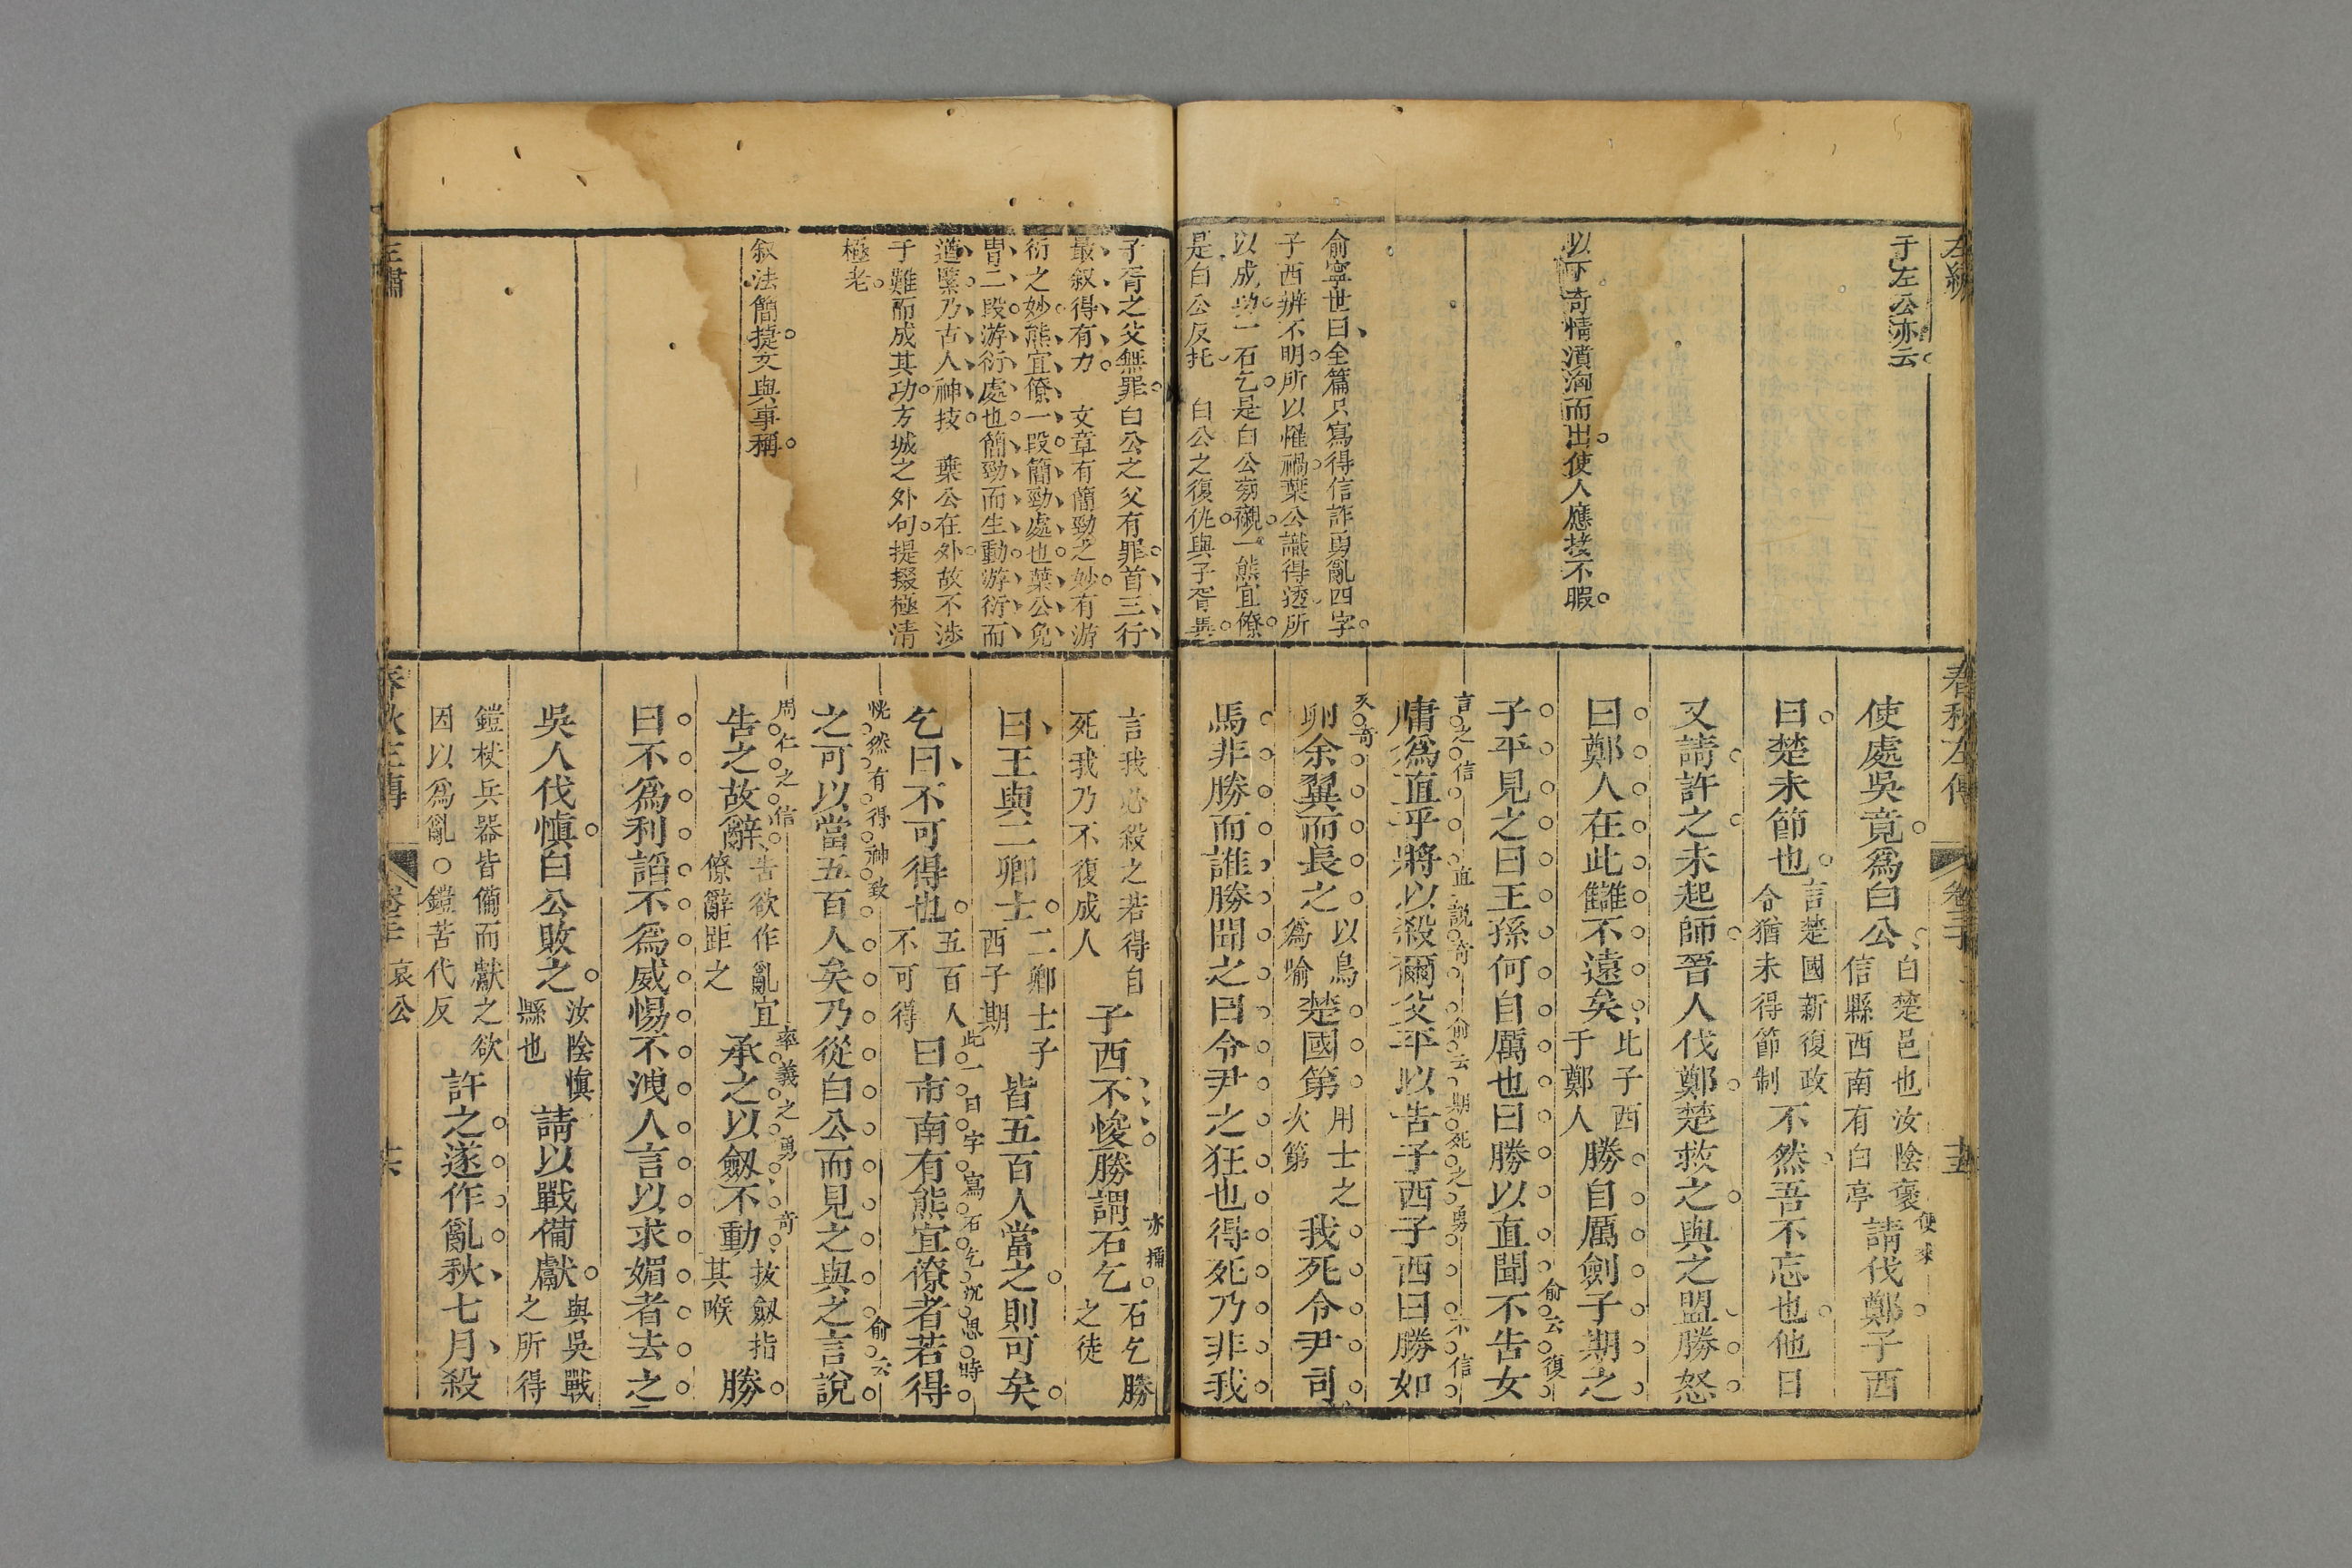 左繡
于左公亦云
以下奇情濆洶而出使人應接不暇
俞寧世曰全篇只寫得信詐勇亂四字
子西辨不明所以惟禍葉公識得透所
以成功一石乞是白公旁襯一熊宜僚
是白公反托　白公之復仇與子胥異
春秋左傳　卷三十　十五
使處吳竟爲白公白楚邑也汝陰褒信縣西南有白亭請伐鄭子西
曰楚未節也言楚國新復政令猶未得節制不然吾不忘也他日
又請許之未起師晉人伐鄭楚救之與之盟勝怒
曰鄭人在此讎不遠矣比子西于鄭人勝自厲劍子期之
子平見之曰王孫何自厲也曰勝以直聞不告女
庸爲直乎將以殺爾父平以告子西子西曰勝如
卵余翼而長之以鳥爲喻楚國第用士之次第我死令尹司
馬非勝而誰勝聞之曰令尹之狂也得死乃非我
俞云復
言之信　直說奇　俞云期死之勇　不信
又奇
子胥之父無罪白公之父有罪首三行
最叙得有力　文章有簡勁之妙有游
衍之妙熊宜僚一段簡勁處也葉公免
冑二段游衍處也簡勁而生動游衍而
遒緊乃古人神技　葉公在外故不涉
于難而成其功方城之外句提掇極清
極老
叙法簡捷文與事稱
言我必殺之若得自死我乃不復成人子西不悛勝謂石乞石乞勝之徒
曰王與二卿士二卿士子西子期皆五百人當之則可矣
乞曰不可得也五百人不可得曰市南有熊宜僚者若得
之可以當五百人矣乃從白公而見之與之言說
告之故辭告欲作亂宜僚辭距之承之以劔不動拔劔指其喉勝
曰不爲利諂不爲威惕不洩人言以求媚者去之
吳人伐慎白公敗之汝陰慎縣也請以戰備獻與吳戰之所得
鎧杖兵器皆備而獻之欲因以爲亂○鎧苦代反許之遂作亂秋七月殺
此一曰字寫石乞沉思時
恍然有得神致　俞云
周仁之信　率義之勇　奇
左繡
春秋左傳　卷三十　哀公　十六